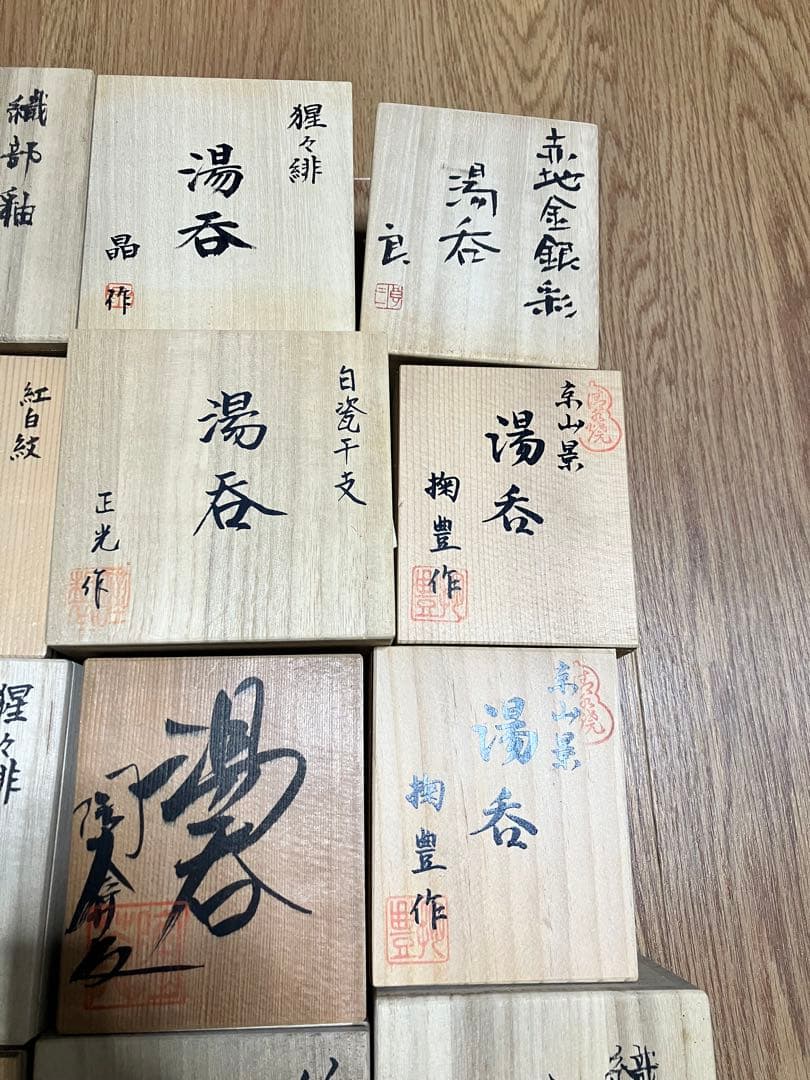 織部釉
猩々緋
湯呑
晶
作
赤地金銀彩
湯呑
良
紅白紋
白瓷干支
湯呑
正光
作
京山景
清水焼
湯呑
掬豊作
猩々緋
湯呑
京山景
清水焼
湯呑
掬豊作
織